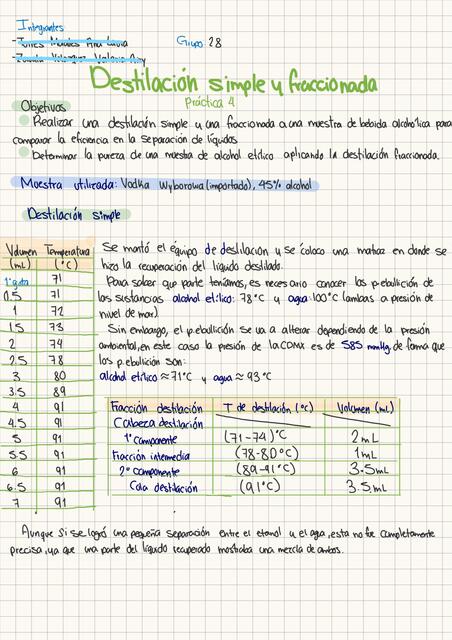 Integrantes
Grupo 28
Destilación simple y fraccionada
Práctica 4
Objetivos
Realizar una destilación simple y una fraccionada a una muestra de bebida alcohólica para
comparar la eficiencia en la separación de líquidos
Determinar la pureza de una muestra de alcohol etílico aplicando la destilación fraccionada.
Muestra utilizada: Vodka Wyborowa (importado), 45% alcohol
Destilación simple
Volumen (mL) Temperatura (°C)
1ª gota 71
0.5 71
1 72
1.5 73
2 74
2.5 78
3 80
3.5 89
4 91
4.5 91
5 91
5.5 91
6 91
6.5 91
7 91
Se montó el equipo de destilación y se coloco una matraz en donde se
hizo la recuperación del líquido destilado.
Para saber que parte teníamos, es necesario conocer los p.ebullición de
las sustancias alcohol etílico: 78°C y agua: 100°C (ambas a presión de
nivel de mar)
Sin embargo, el p.ebullición se va a alterar dependiendo de la presión
ambiental, en este caso la presión de la CDMX es de 585 mmHg de forma que
los p.ebullición son:
alcohol etílico ≈ 71°C y agua ≈ 93°C
Fracción destilación T de destilación (°C) Volumen (mL)
Cabeza destilación
1° componente (71-74)°C 2mL
Fracción intermedia (78-80°C) 1mL
2° componente (89-91°C) 3.5mL
Cola destilación (91°C) 3.5mL
Aunque si se logró una pequeña separación entre el etanol y el agua, esta no fue completamente
precisa, ya que una parte del líquido recuperado mostraba una mezcla de ambos.